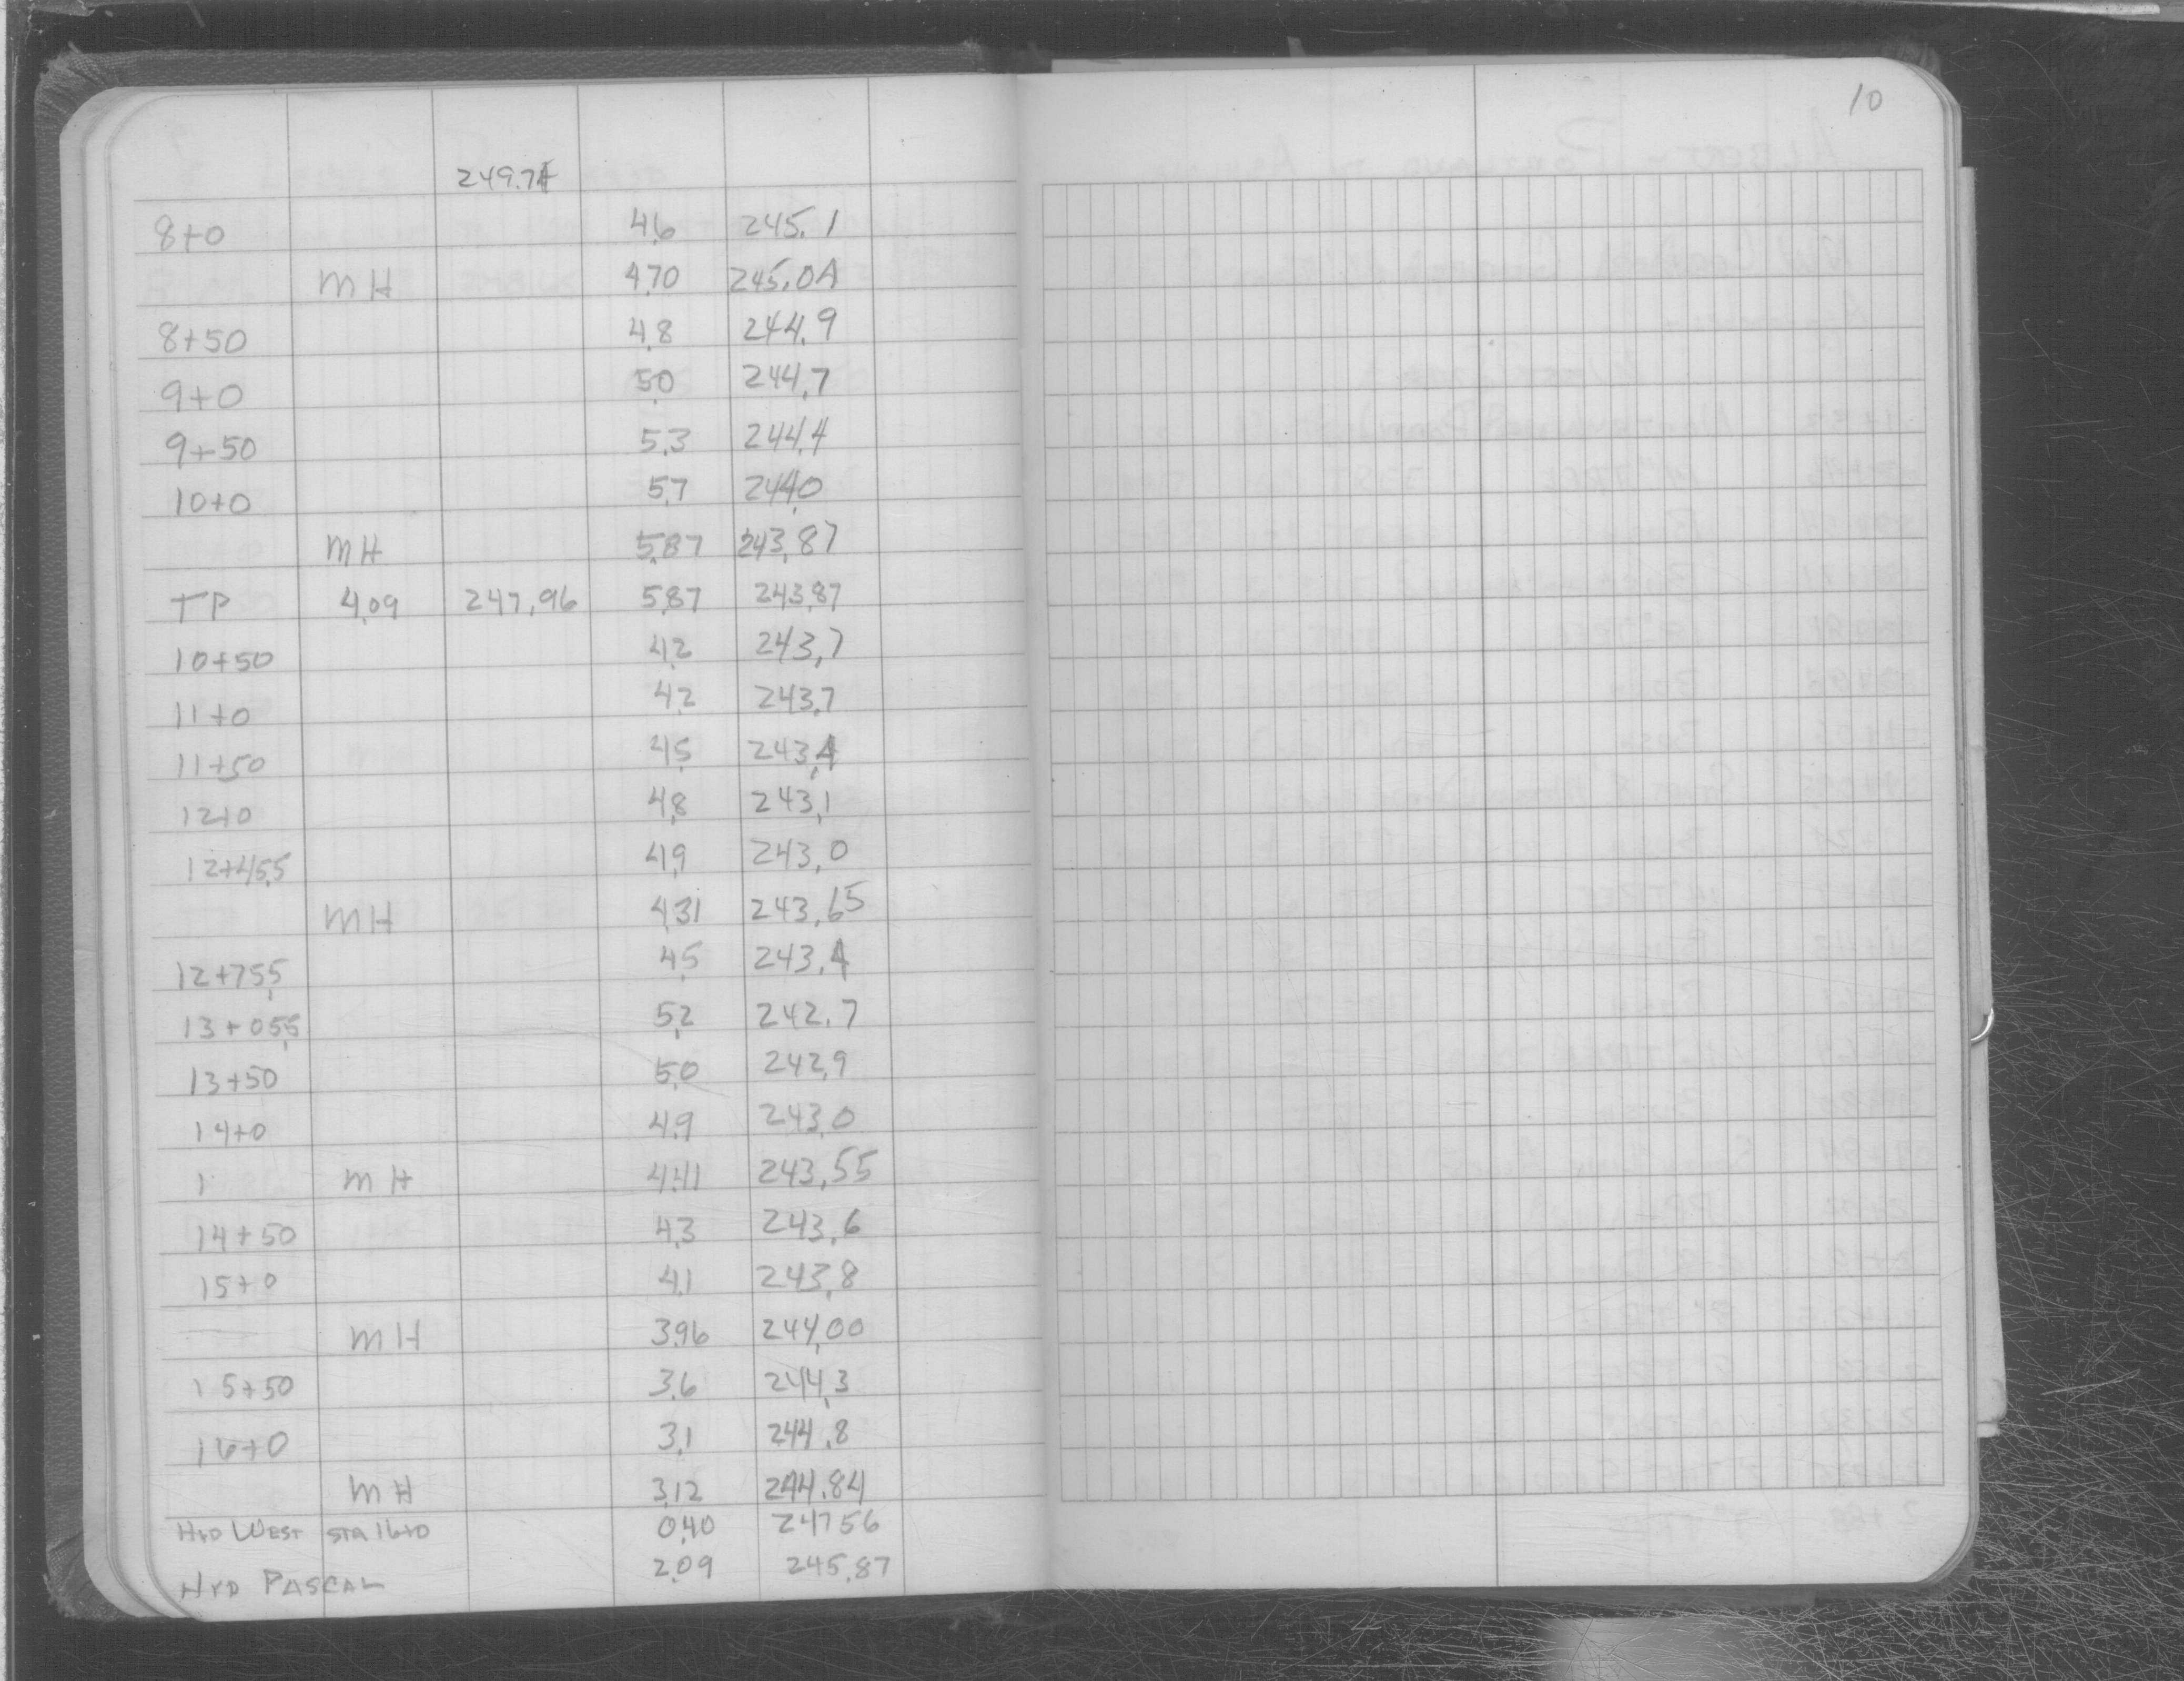 10
249.74
8+0 4.6 245.1
MH 4.70 245.04
8+50 4.8 244.9
9+0 5.0 244.7
9+50 5.3 244.4
10+0 5.7 244.0
MH 5.87 243.87
TP 4.09 247.96 5.87 243.87
10+50 4.2 243.7
11+0 4.2 243.7
11+50 4.5 243.4
12+0 4.8 243.1
12+45.5 4.9 243.0
MH 4.31 243.65
12+75.5 4.5 243.4
13+05.5 5.2 242.7
13+50 5.0 242.9
14+0 4.9 243.0
1 MH 4.41 243.55
14+50 4.3 243.6
15+0 4.1 243.8
MH 3.96 244.00
15+50 3.6 244.3
16+0 3.1 244.8
MH 3.12 244.84
HYD WEST STA 16+0 0.40 247 56
HYD PASCAL 2.09 245.87